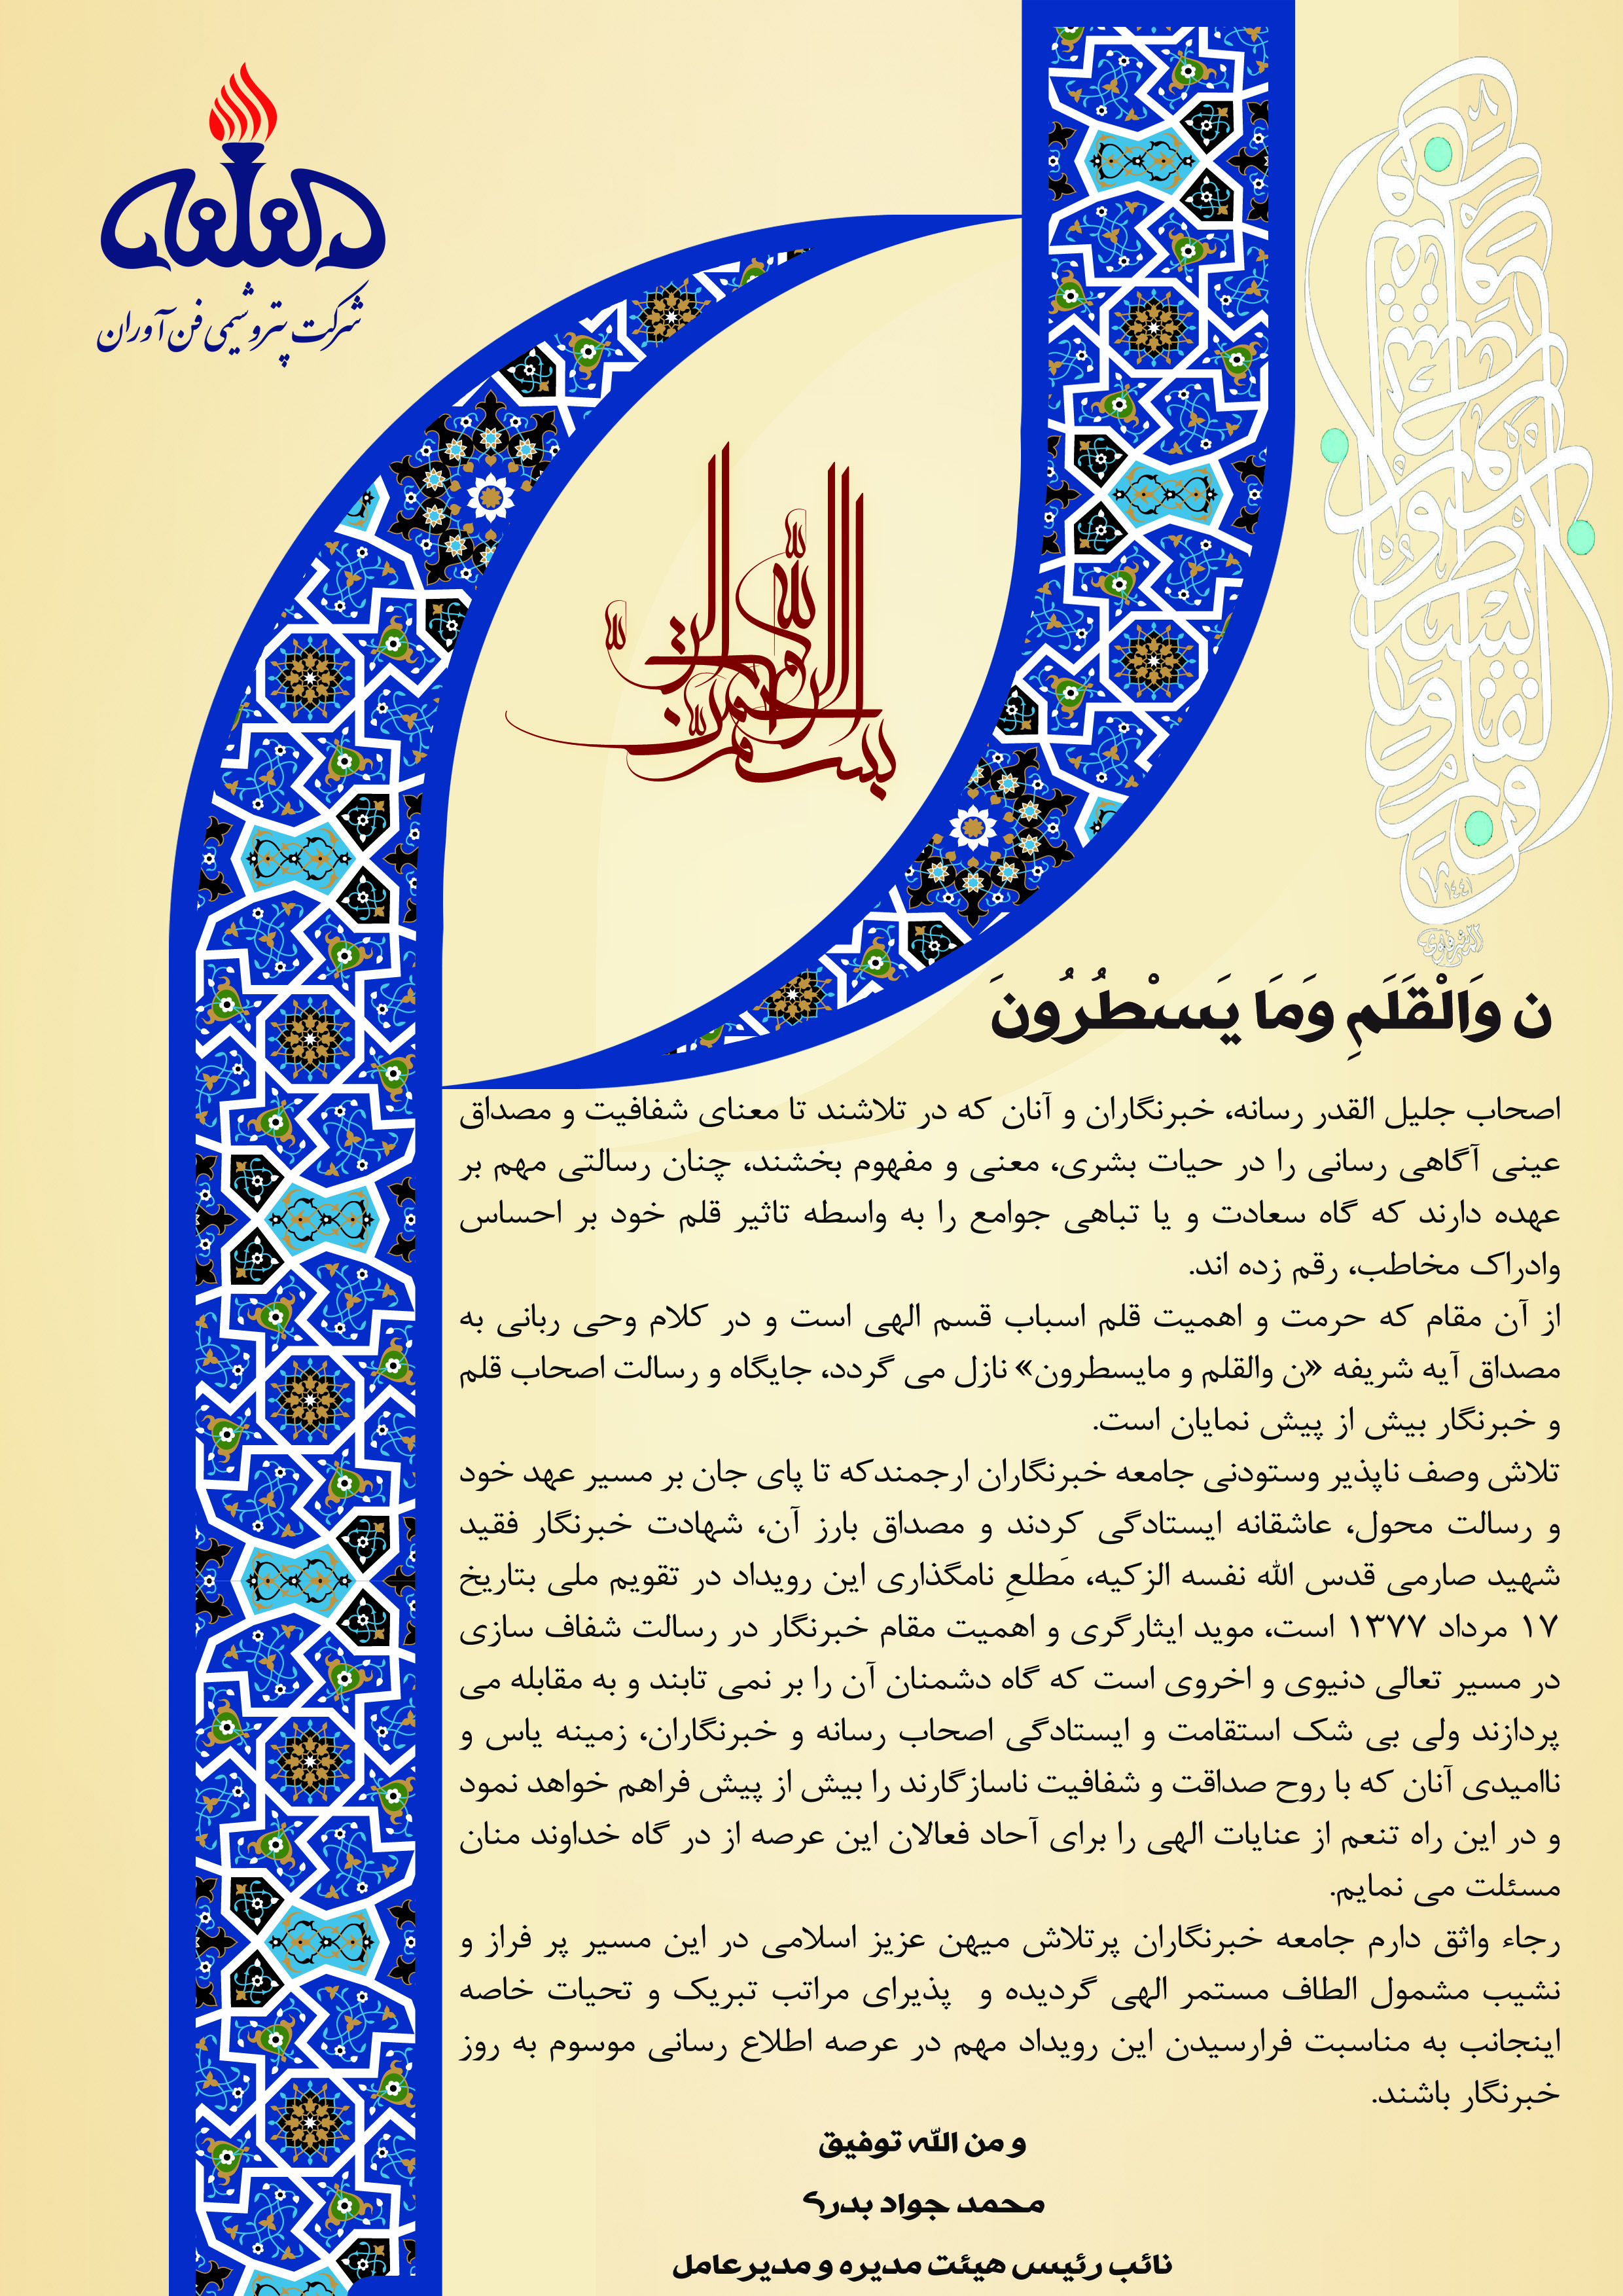 شرکت پتروشیمی فن‌آوران
بسم الله الرحمن الرحیم
ن وَالْقَلَمِ وَمَا يَسْطُرُونَ
۱۴۴۱
ن وَالْقَلَمِ وَمَا يَسْطُرُونَ
اصحاب جلیل القدر رسانه، خبرنگاران و آنان که در تلاشند تا معنای شفافیت و مصداق
عینی آگاهی رسانی را در حیات بشری، معنی و مفهوم بخشند، چنان رسالتی مهم بر
عهده دارند که گاه سعادت و یا تباهی جوامع را به واسطه تاثیر قلم خود بر احساس
وادراک مخاطب، رقم زده اند.
از آن مقام که حرمت و اهمیت قلم اسباب قسم الهی است و در کلام وحی ربانی به
مصداق آیه شریفه «ن والقلم و مایسطرون» نازل می گردد، جایگاه و رسالت اصحاب قلم
و خبرنگار بیش از پیش نمایان است.
تلاش وصف ناپذیر وستودنی جامعه خبرنگاران ارجمندکه تا پای جان بر مسیر عهد خود
و رسالت محول، عاشقانه ایستادگی کردند و مصداق بارز آن، شهادت خبرنگار فقید
شهید صارمی قدس الله نفسه الزکیه، مَطلعِ نامگذاری این رویداد در تقویم ملی بتاریخ
۱۷ مرداد ۱۳۷۷ است، موید ایثارگری و اهمیت مقام خبرنگار در رسالت شفاف سازی
در مسیر تعالی دنیوی و اخروی است که گاه دشمنان آن را بر نمی تابند و به مقابله می
پردازند ولی بی شک استقامت و ایستادگی اصحاب رسانه و خبرنگاران، زمینه یاس و
ناامیدی آنان که با روح صداقت و شفافیت ناسازگارند را بیش از پیش فراهم خواهد نمود
و در این راه تنعم از عنایات الهی را برای آحاد فعالان این عرصه از در گاه خداوند منان
مسئلت می نمایم.
رجاء واثق دارم جامعه خبرنگاران پرتلاش میهن عزیز اسلامی در این مسیر پر فراز و
نشیب مشمول الطاف مستمر الهی گردیده و پذیرای مراتب تبریک و تحیات خاصه
اینجانب به مناسبت فرارسیدن این رویداد مهم در عرصه اطلاع رسانی موسوم به روز
خبرنگار باشند.
و من الله توفیق
محمد جواد بدری
نائب رئیس هیئت مدیره و مدیرعامل